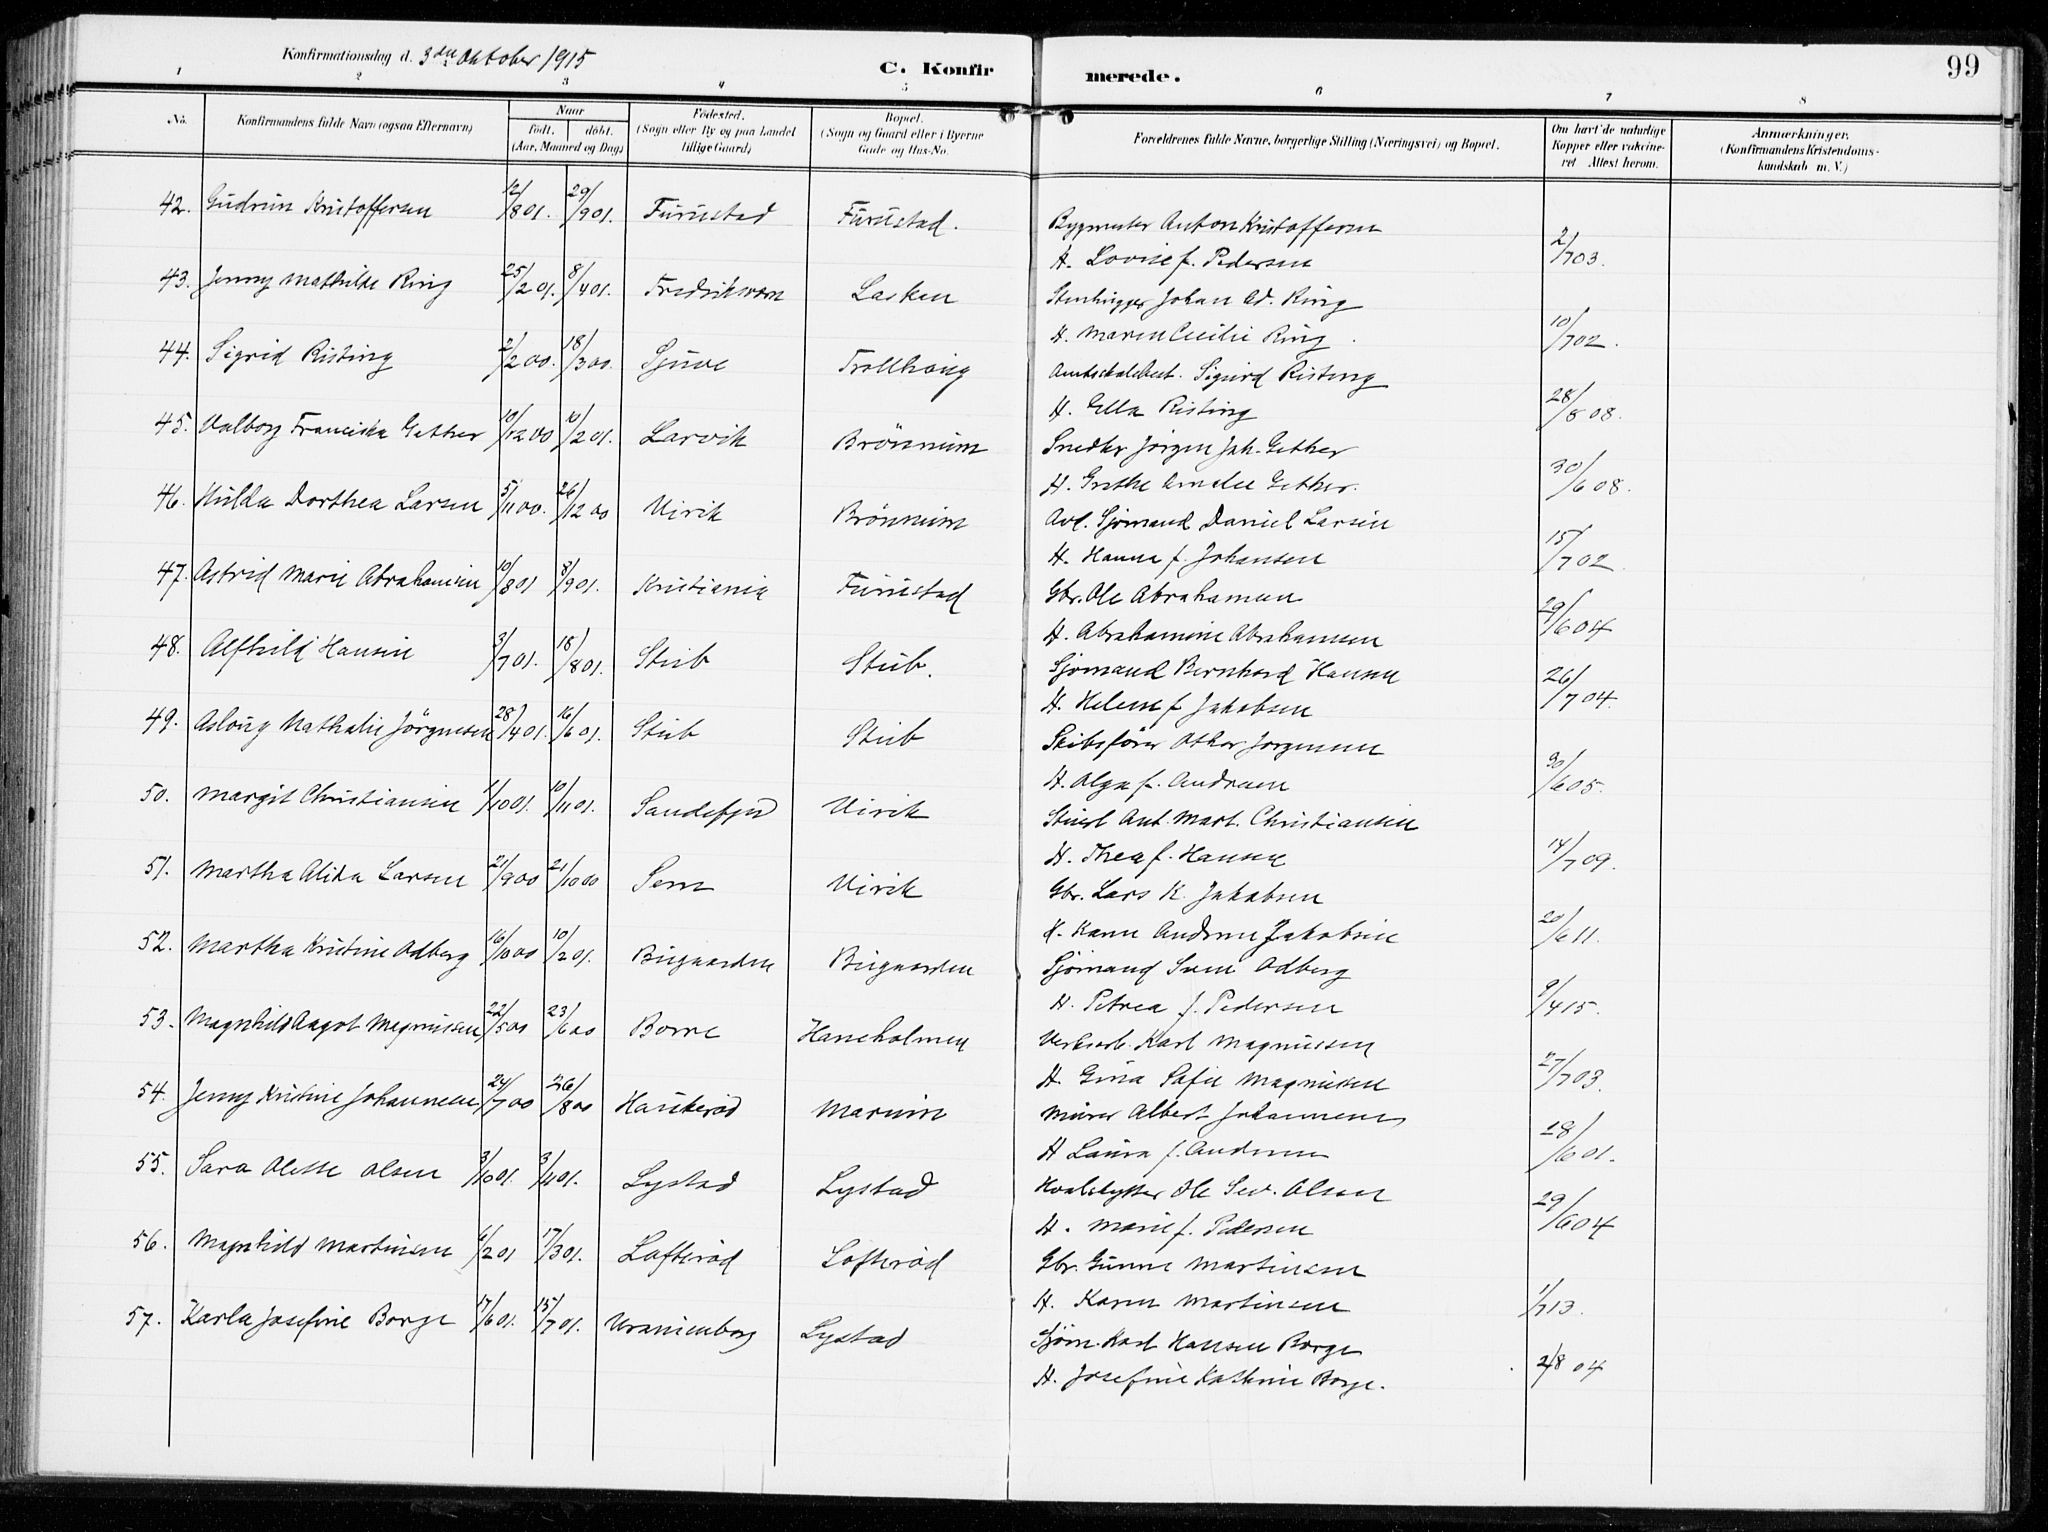 Konfirmationsdag d. 3die Oktober 1915
C. Konfirmerede.
99
1 2 3 4 5 6 7 8
No. Konfirmandens fulde Navn (ogsaa Efternavn) Naar født. døbt. (Aar, Maaned og Dag) Fødested. (Sogn eller By og paa Landet tillige Gaard) Bopæl. (Sogn og Gaard eller i Byerne Gade og Hus-No. Forældrenes fulde Navne, borgerlige Stilling (Næringsvei) og Bopæl. Om havt de naturlige Kopper eller vakcineret Attest herom. Anmærkninger. (Konfirmandens Kristendomskundskab m. V.)
42. Gudrun Kristoffersen 12/8 01. 29/9 01. Furustad Furustad. Bygmester Anton Kristoffersen
H. Lovise f. Pedersen 2/7 03.
43. Jenny Mathilde Ring 25/2 01. 8/4 01. Fredriksværn Lasken Stenhugger Johan Ad. Ring
H. Maren Cecilie Ring 10/7 02.
44. Sigrid Risting 2/2 00. 18/3 00. Sjuve Trollhaug Amtsskolebest. Sigurd Risting
H. Ella Risting 28/8 08.
45. Valborg Franciska Gether 10/12 00 10/2 01. Larvik Brönnum Snedker Jörgen Joh. Gether
H. Grethe Amalie Gether. 30/6 08.
46. Hulda Dorthea Larsen 5/11 00. 26/12 00 Virik Brönnum Avd. Sjömand Daniel Larsen
H. Hanna f. Johansen 15/7 02
47. Astrid Marie Abrahamsen 10/8 01 8/9 01. Kristiania Furustad Gbr. Ole Abrahamsen
H. Abrahamine Abrahamsen 29/6 04
48. Alfhild Hansen 3/7 01. 18/8 01. Stub Stub. Sjömand Bernhard Hansen
H. Helene f. Jakobsen 26/7 04.
49. Aslaug Nathalie Jörgensen 28/4 01. 16/6 01. Stub Stub Skibsförer Othar Jörgensen
H. Olga f. Andresen 30/6 05.
50. Margit Christiansen 1/10 01. 10/11 01. Sandefjord Virik Stuert Ant. Mart. Christiansen
H. Thea f. Hansen 14/7 09.
51. Martha Alida Larsen 21/9 00 21/10 00 Sem Virik Gbr. Lars K. Jakobsen
H. Karen Andrine Jakobsen 20/6 11.
52. Martha Kristine Odberg 16/10 00 10/2 01. Bugaarden Bugaarden Sjömand Sven Odberg
H. Petrea f. Pedersen 9/4 15.
53. Magnhild Aagot Magnussen 22/5 00 23/6 00 Borre Haneholmen Verksarb. Karl Magnussen
H. Gina Sofie Magnussen 27/7 03.
54. Jenny Kristine Johannesen 24/7 00 26/8 00 Haukeröd Marum Murer Albert Johannesen
H Laura f. Andersen 18/6 01.
55. Sara Olette Olsen 3/10 01. 3/4 01. Lystad Lystad Hvalskytter Ole Sev. Olsen
H. Marie f. Pedersen 29/6 04
56. Magnhild Martinsen 6/2 01 17/3 01. Lofteröd Lofteröd Gbr. Gunne Martinsen
H. Karen Martinsen 1/7 13.
57. Karla Josefine Borge 17/6 01. 15/7 01. Uranienborg Lystad Sjöm. Karl Hansen Borge
H. Josefine Kathrine Borge. 2/8 04